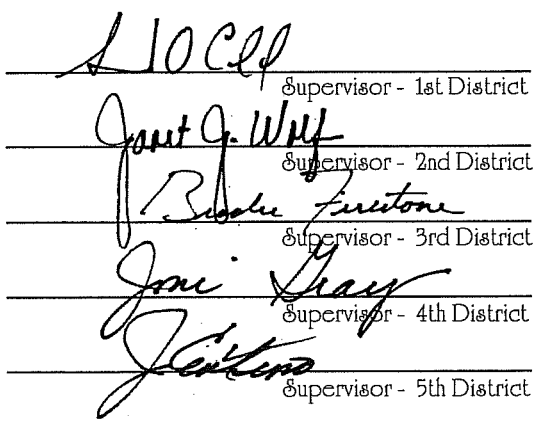 Supervisor - 1st District
Janet G. Wolf
Supervisor - 2nd District
Brooks Firestone
Supervisor - 3rd District
Joni Gray
Supervisor - 4th District
J. Centeno
Supervisor - 5th District